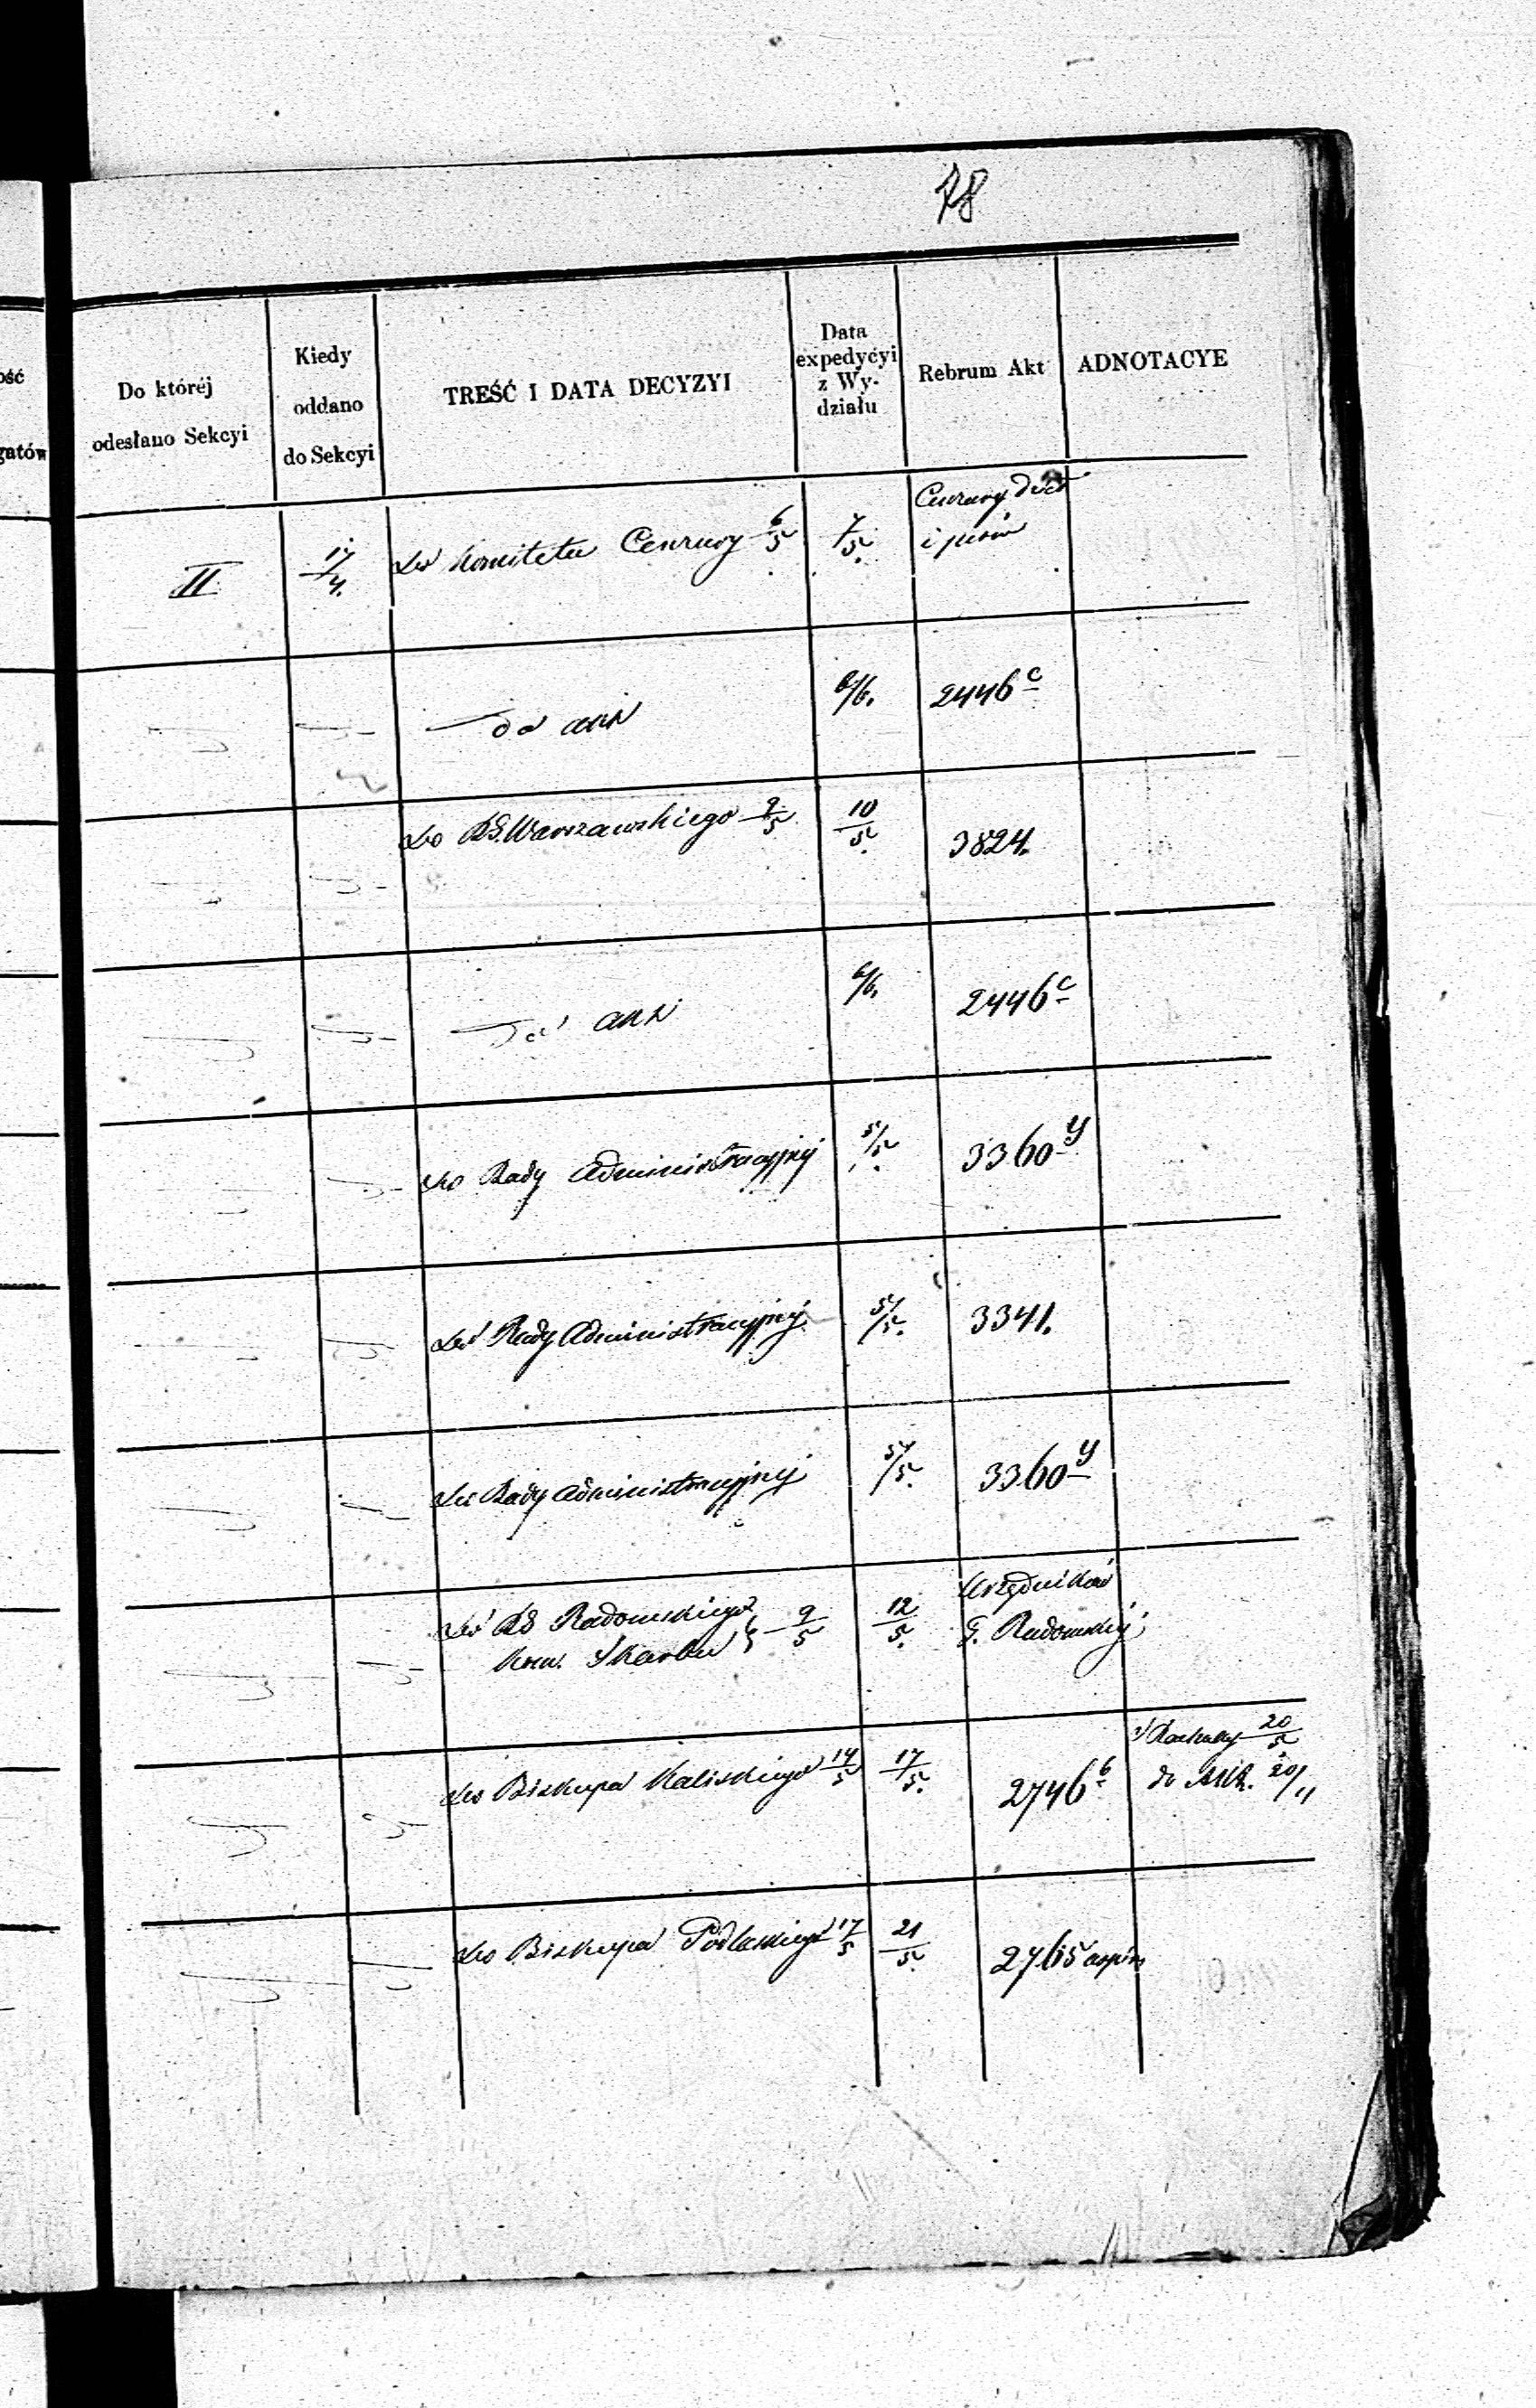 78
ość
gatów
Do któréj
odesłano Sekcyi
Kiedy
oddano
do Sekcyi
TREŚĆ I DATA DECYZYI
Data
expedycyi
z Wy-
działu
Rebrum Akt
ADNOTACYE
II 17/4. Do Komitetu Cenzury 6/5 7/5. Cenzury dzieł
i pism
ad acta 6/6. 2446 c
Do RG. Warszawskiego 9/5 10/5. 3824.
ad acta 6/6. 2446 c
Do Rady Administracyjnej 5/5. 3360 y
Do Rady Administracyjnej 5/5. 3341.
Do Rady Administracyjnej 5/5. 3360 y
Do RG Radomskiego 9/5 12/5. Urzędników
Kom. Skarbu G. Radomskiej
Do Biskupa Kaliskiego 14/5 17/5. 2746 b 20/5
do 20/11
Do Biskupa Podlaskiego 17/5 21/5. 2765